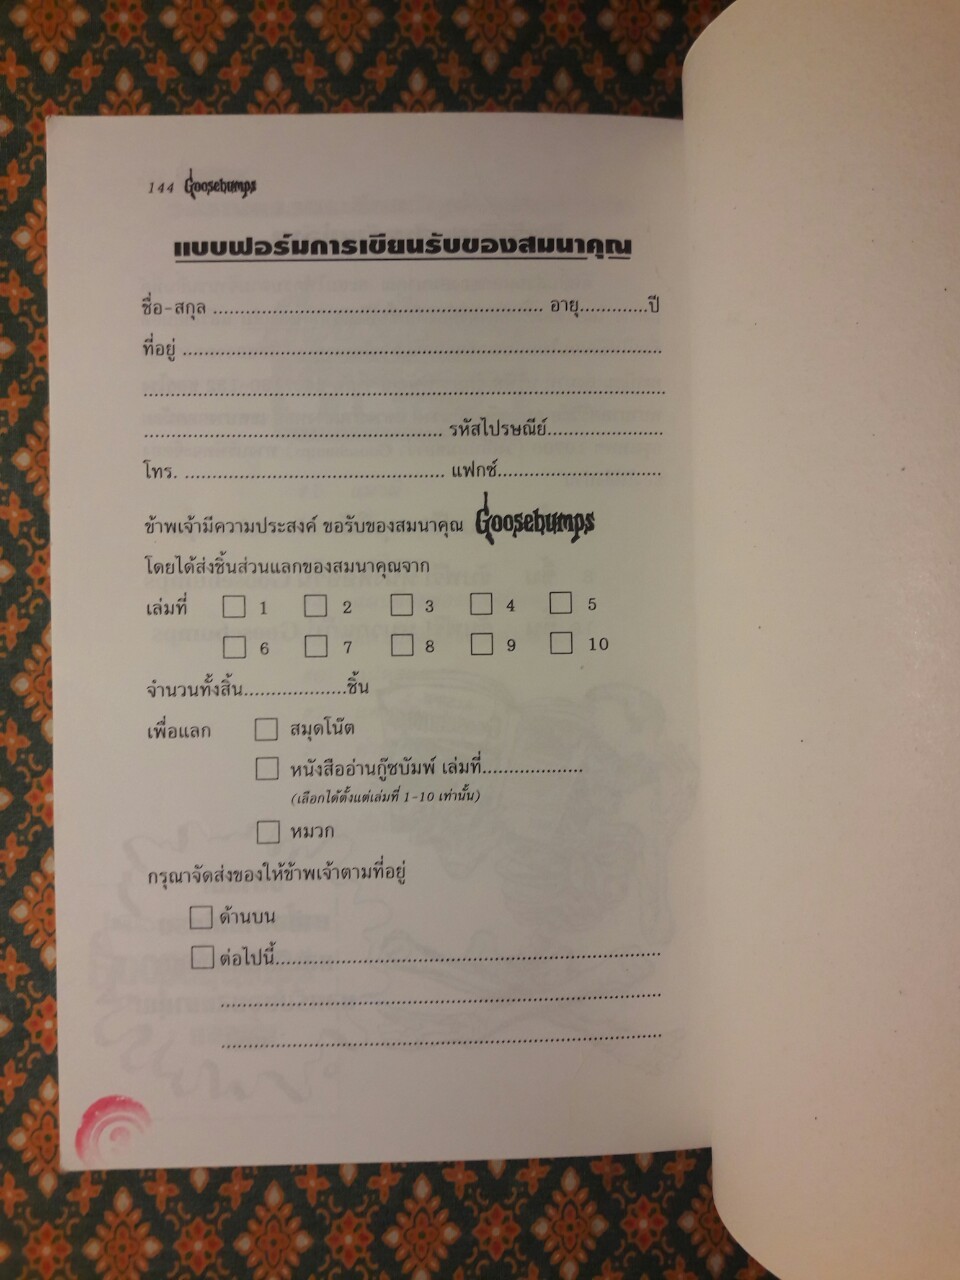 144 Goosebumps
แบบฟอร์มการเขียนรับของสมนาคุณ
ชื่อ-สกุล ................................................. อายุ.............ปี
ที่อยู่ ........................................................................
...............................................................................
............................................. รหัสไปรษณีย์......................
โทร. ....................................... แฟกซ์...............................
ข้าพเจ้ามีความประสงค์ ขอรับของสมนาคุณ Goosebumps
โดยได้ส่งชิ้นส่วนแลกของสมนาคุณจาก
เล่มที่ 1 2 3 4 5
6 7 8 9 10
จำนวนทั้งสิ้น...................ชิ้น
เพื่อแลก สมุดโน๊ต
หนังสืออ่านกู๊ซบัมพ์ เล่มที่...................
(เลือกได้ตั้งแต่เล่มที่ 1-10 เท่านั้น)
หมวก
กรุณาจัดส่งของให้ข้าพเจ้าตามที่อยู่
ด้านบน
ต่อไปนี้..........................................................
..................................................................
..................................................................